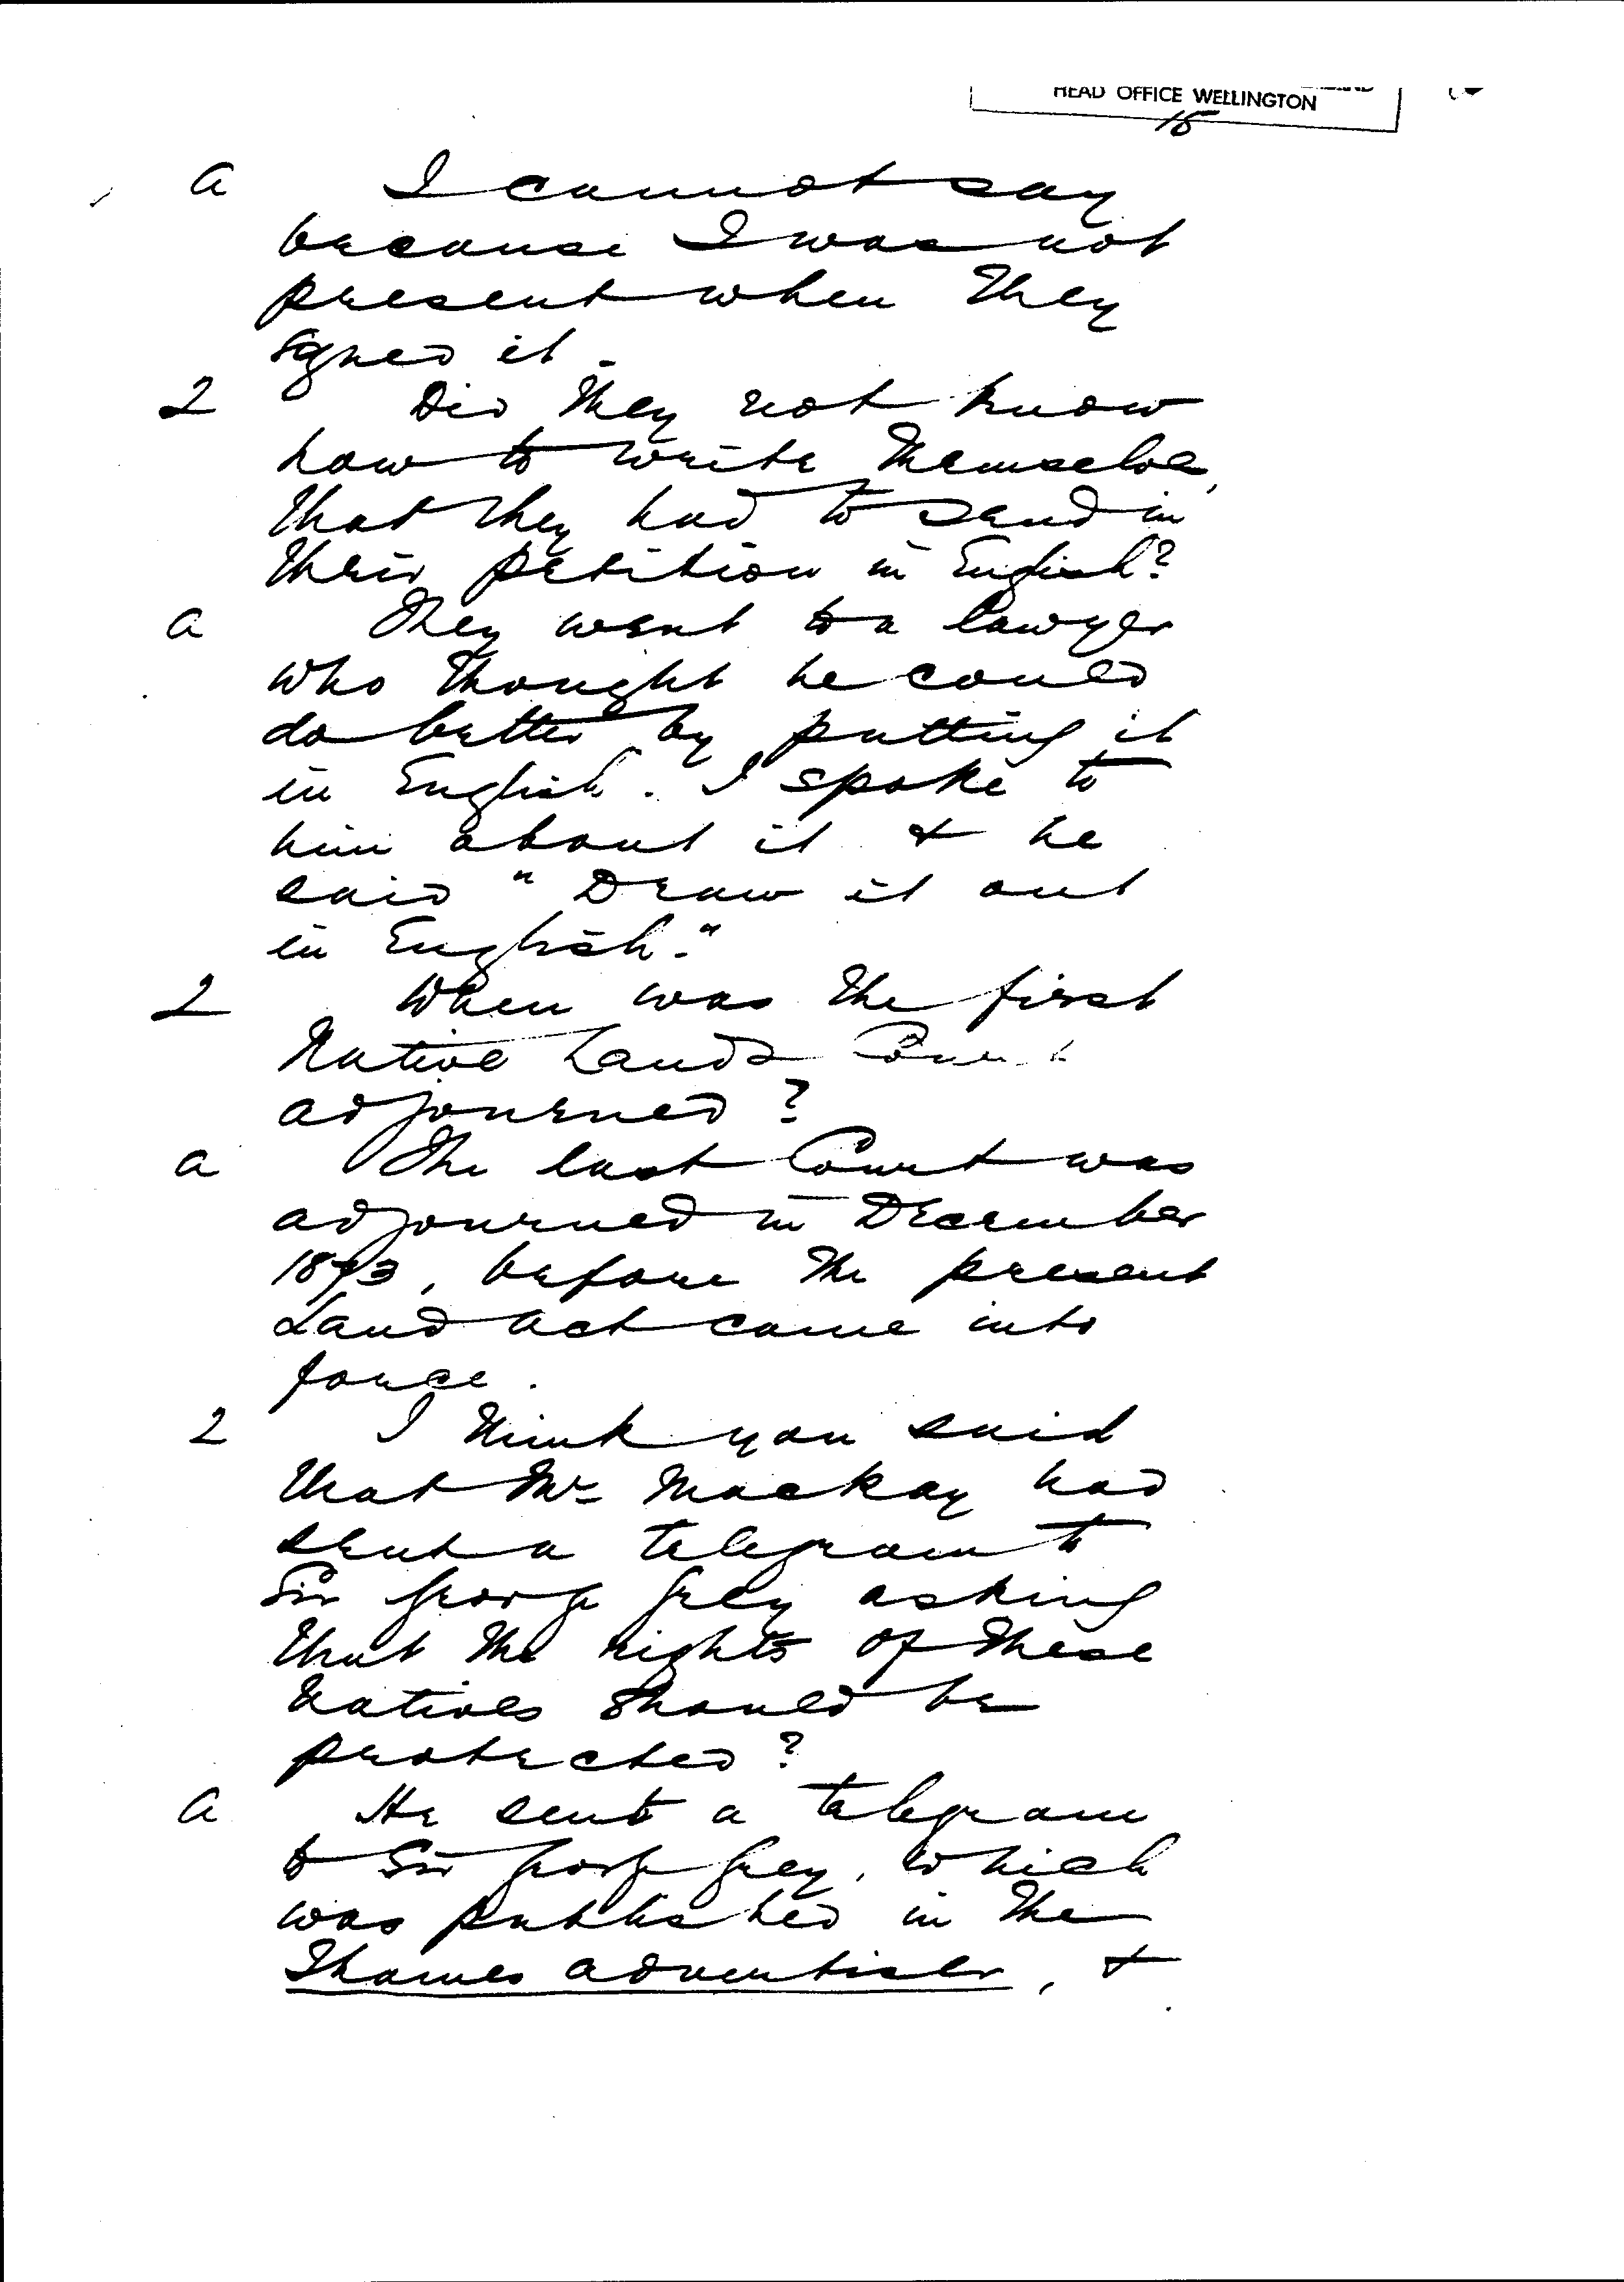 HEAD OFFICE WELLINGTON
15
A I cannot say
because I was not
present when they
signed it.
Q Did they not know
how to write themselves,
that they had to send in
their petition in English?
A They went to a lawyer
who thought he could
do better by putting it
in English. I spoke to
him about it & he
said "Draw it out
in English."
Q When was the first
Native Lands Court
adjourned?
A The last Court was
adjourned in December
1873, before the present
Land Act came into
force.
Q I think you said
that Mr Mackay had
sent a telegram to
Sir George Grey asking
that the rights of these
Natives should be
protected?
A He sent a telegram
to Sir George Grey, which
was published in the
Thames Advertiser, &